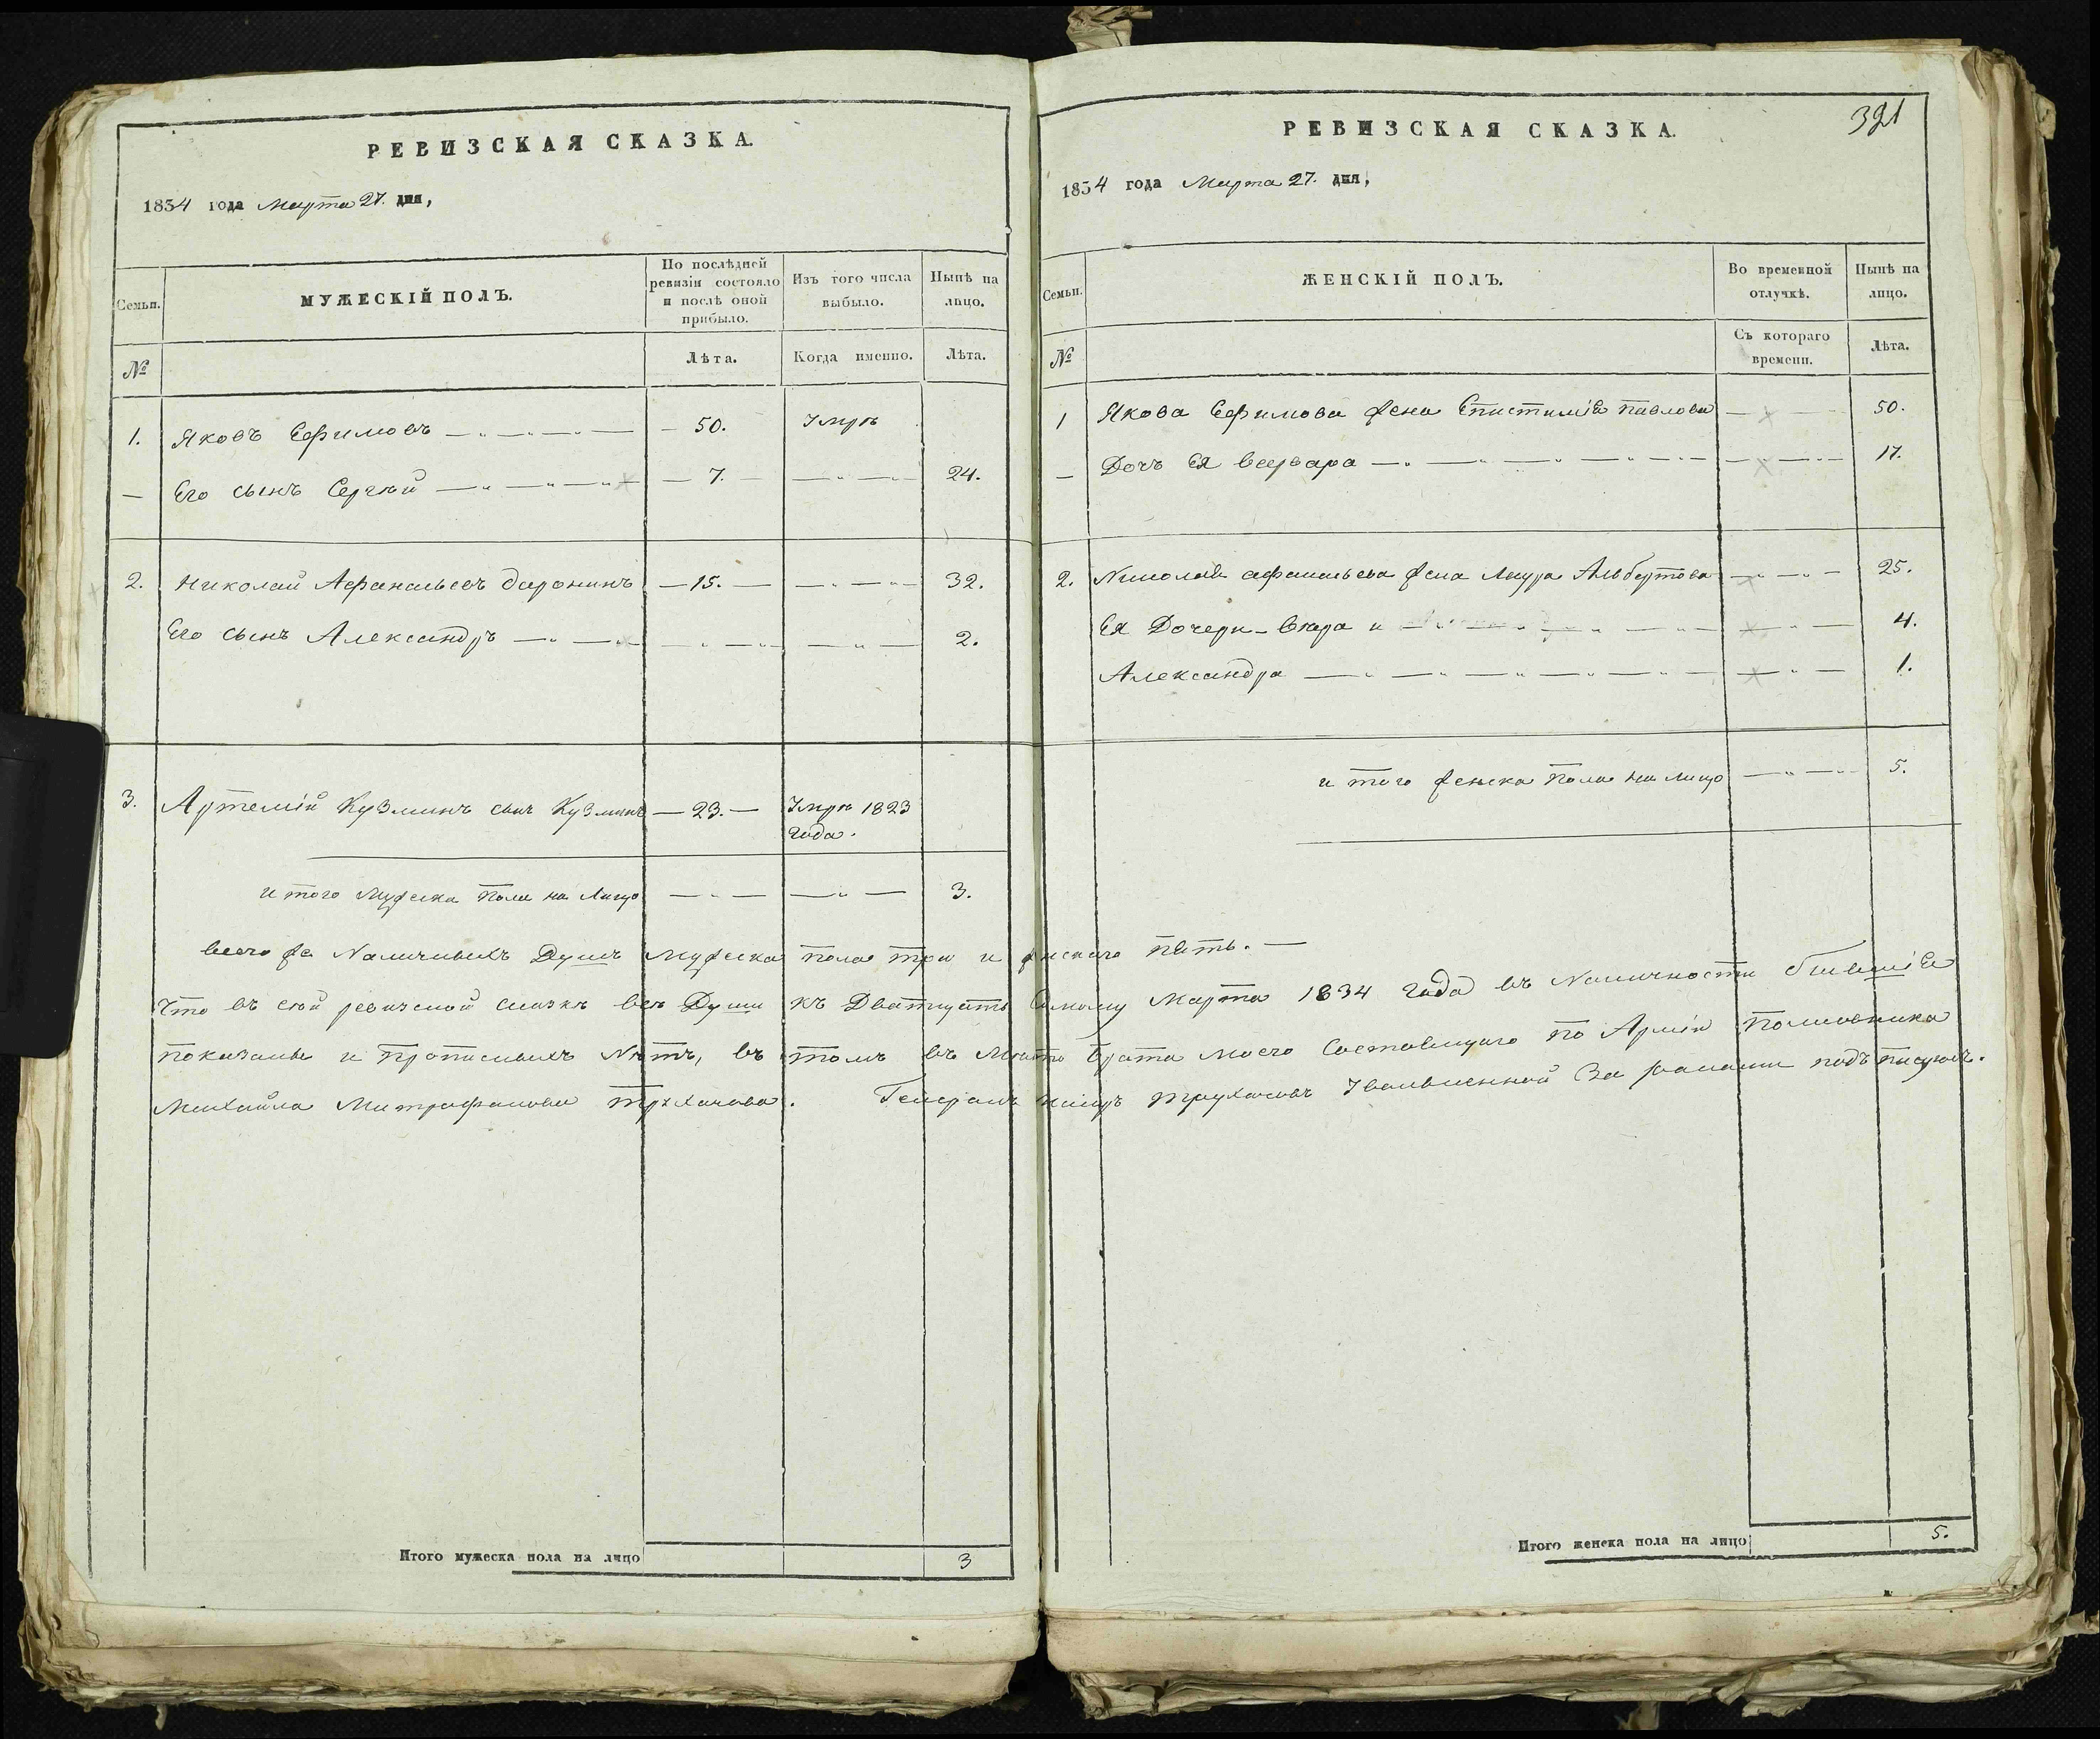 РЕВИЗСКАЯ СКАЗКА.
1834 года Марта 27. дня,
Семьи.
МУЖЕСКІЙ ПОЛЪ.
По послѣдней ревизіи состояло и послѣ оной прибыло.
Изъ того числа выбыло.
Нынѣ на лицо.
№
Лѣта.
Когда именно.
Лѣта.
1. Яковъ Ефимовъ — 50. Умре
— Его сынъ Сергѣй — 7. — 24.
2. Николай Афанасьевъ Даронинъ — 15. — 32.
Его сынъ Александръ — 2.
3. Артемій Кузминъ сынъ Кузминъ — 23. — Умре 1823
года.
и того Мужеска пола на Лицо — 3.
РЕВИЗСКАЯ СКАЗКА.
391
1834 года Марта 27. дня,
Семьи.
ЖЕНСКІЙ ПОЛЪ.
Во временной отлучкѣ.
Нынѣ на лицо.
№
Съ котораго времени.
Лѣта.
1 Якова Ефимова жена Епистиміѧ Павлова — 50.
— Дочь Ея Варвара — 17.
2. Николая афанасьева жена Лаура Альбертова — 25.
Ея Дочери Вѣра и — 4.
Александра — 1.
и того женска пола на лицо — 5.
всего же Наличныхъ Душъ Мужеска пола три и женскаго пять. —
Что въ сей ревизской сказкѣ всѣ Души къ Дватцать Семому Марта 1834 года въ Наличности бывшіе
показаны и прописныхъ Нѣтъ, въ томъ въ Мѣсто брата моего Состоящаго по Арміи Полковника
Михайла Митрофанова Трухачова. Генералъ Маіоръ Трухачовъ Уволенной За ранами подписуюсь.
Итого мужеска пола на лицо 3
Итого женска пола на лицо 5.